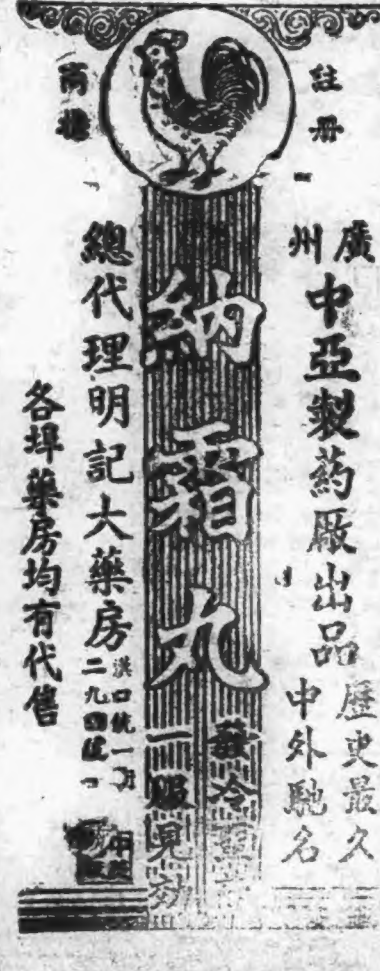 註冊
商標
廣州
中亞製药厰出品
歷史最久
中外馳名
納霜丸
發冷
一服見効
總代理明記大藥房
漢口統一
二九
各埠藥房均有代售